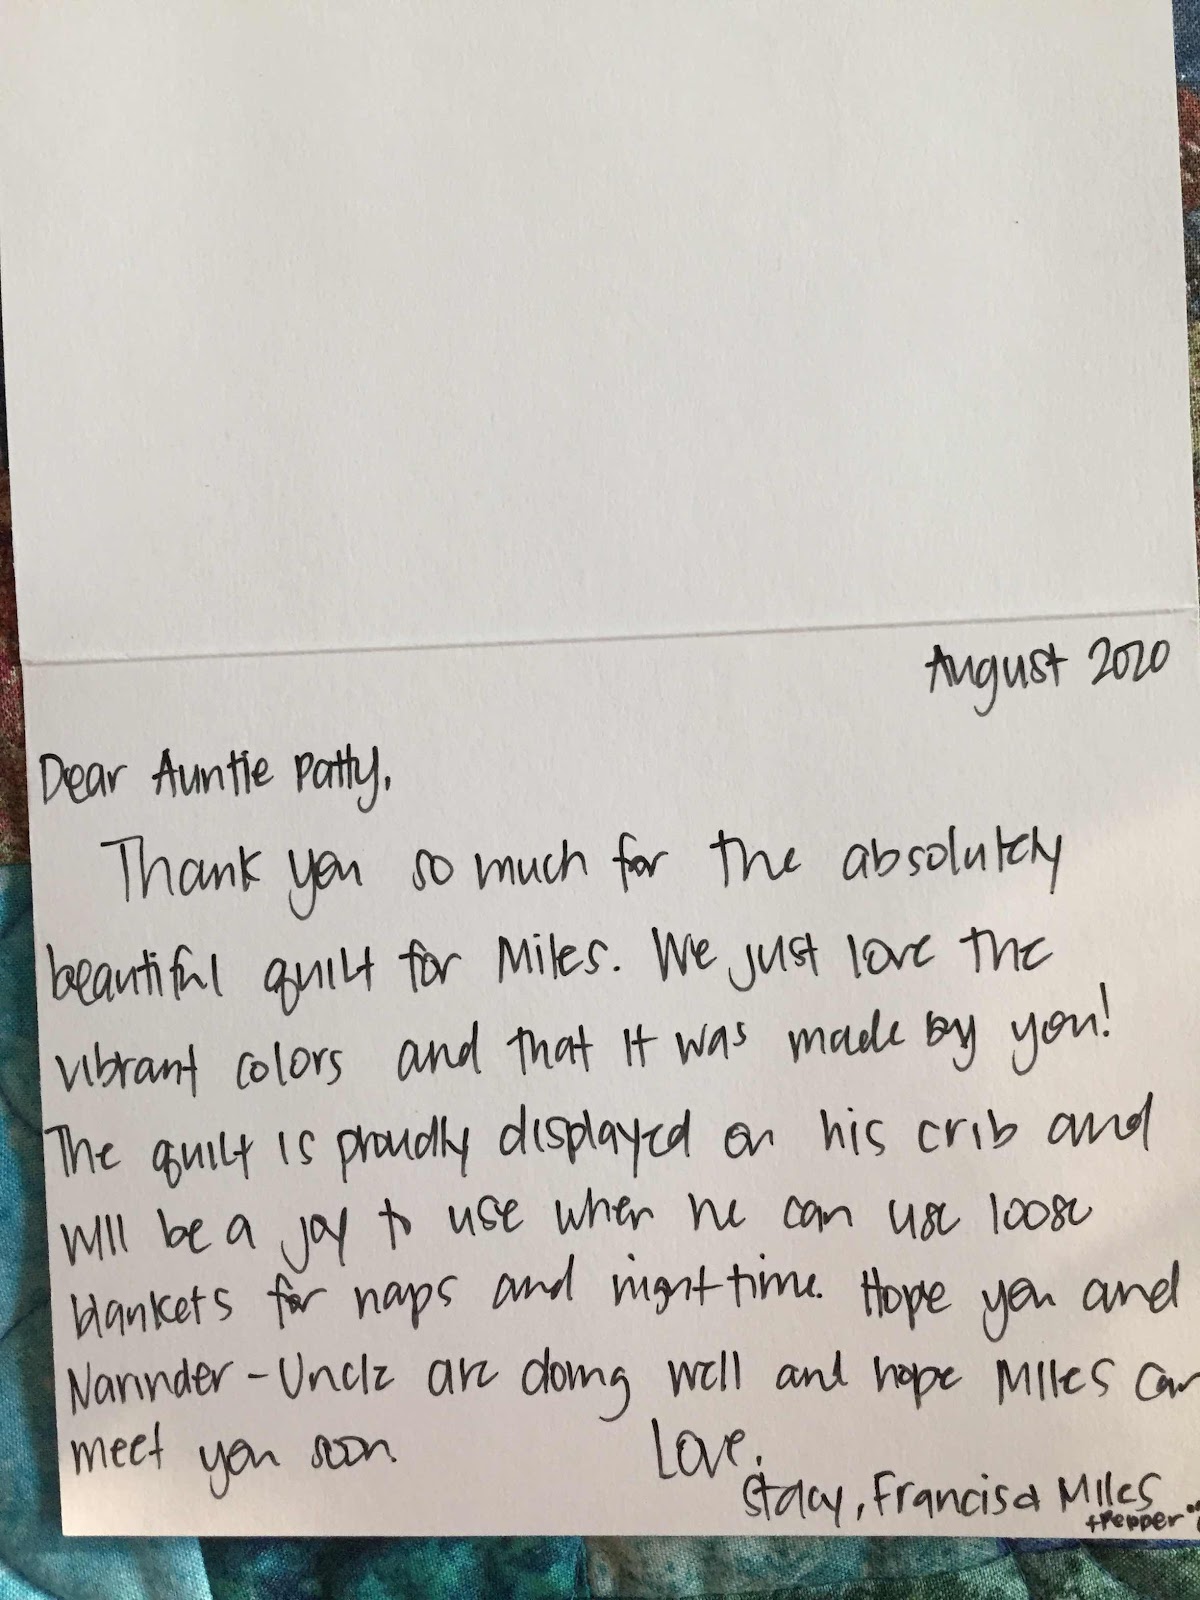 August 2020
Dear Auntie Patty,
Thank you so much for the absolutely
beautiful quilt for Miles. We just love the
vibrant colors and that it was made by you!
The quilt is proudly displayed on his crib and
will be a joy to use when he can use loose
blankets for naps and night-time. Hope you and
Narinder-Uncle are doing well and hope Miles can
meet you soon.
Love,
Stacy, Francis & Miles
+Pepper